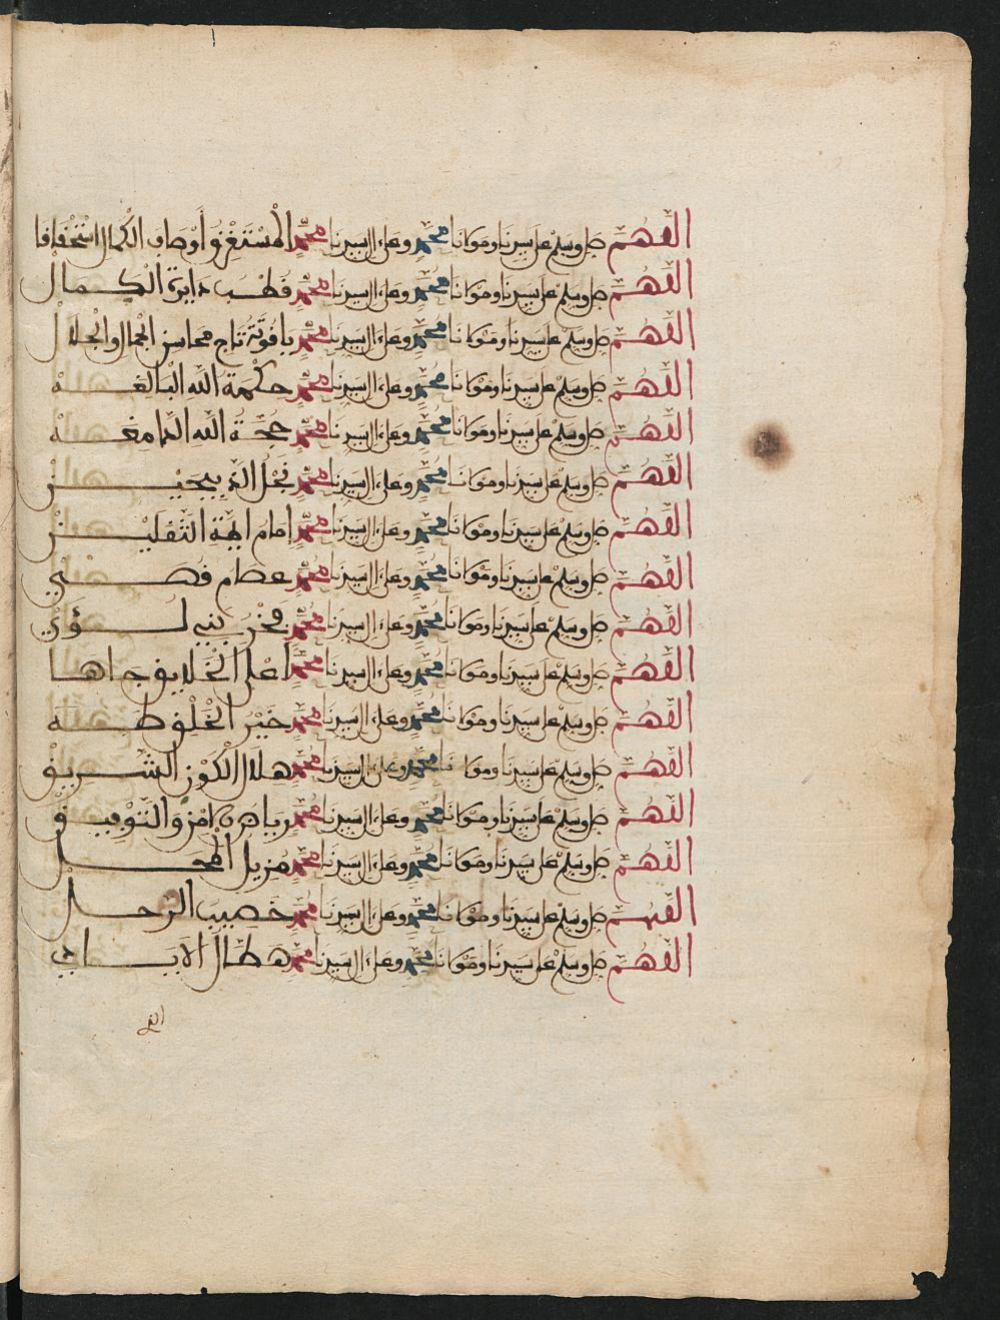 اللهم صل وسلم على سيدنا ومولانا محمد وعلى ال سيدنا محمد المستغرق أوصاف الكمال استحقاقا
اللهم صل وسلم على سيدنا ومولانا محمد وعلى ال سيدنا محمد قطب دايرة الكمال
اللهم صل وسلم على سيدنا ومولانا محمد وعلى ال سيدنا محمد ياقوتة تاج محاسن الجمال والجلال
اللهم صل وسلم على سيدنا ومولانا محمد وعلى ال سيدنا محمد حكمة الله البالغه
اللهم صل وسلم على سيدنا ومولانا محمد وعلى ال سيدنا محمد حجة الله الدامغه
اللهم صل وسلم على سيدنا ومولانا محمد وعلى ال سيدنا محمد نجل الذبيحين
اللهم صل وسلم على سيدنا ومولانا محمد وعلى ال سيدنا محمد امام ايمة الثقلين
اللهم صل وسلم على سيدنا ومولانا محمد وعلى ال سيدنا محمد عصام قصي
اللهم صل وسلم على سيدنا ومولانا محمد وعلى ال سيدنا محمد فخر بني لؤي
اللهم صل وسلم على سيدنا ومولانا محمد وعلى ال سيدنا محمد اعلى الخلايق جاها
اللهم صل وسلم على سيدنا ومولانا محمد وعلى ال سيدنا محمد خير الخلق طه
اللهم صل وسلم على سيدنا ومولانا محمد وعلى ال سيدنا محمد هلال الكون الشريق
اللهم صل وسلم على سيدنا ومولانا محمد وعلى ال سيدنا محمد رياض الامن والتوفيق
اللهم صل وسلم على سيدنا ومولانا محمد وعلى ال سيدنا محمد مزيل المحل
اللهم صل وسلم على سيدنا ومولانا محمد وعلى ال سيدنا محمد خصيب الرحل
اللهم صل وسلم على سيدنا ومولانا محمد وعلى ال سيدنا محمد هطال